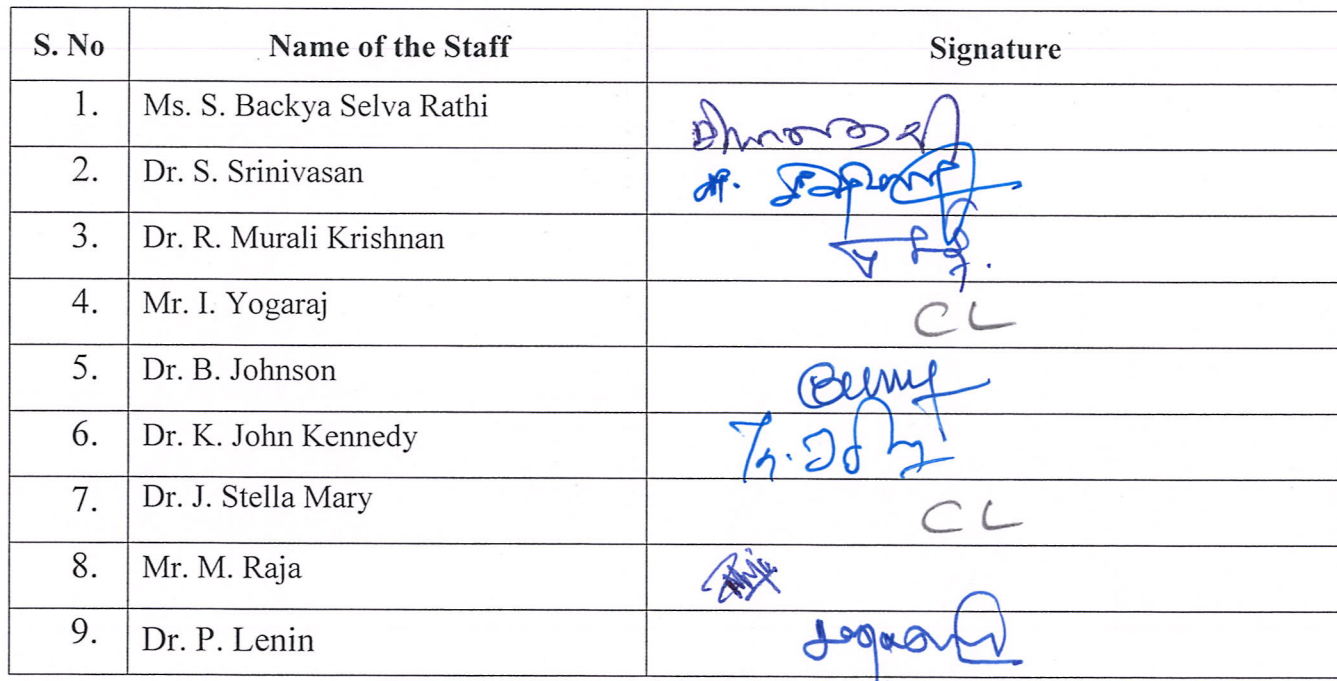 S. No Name of the Staff Signature
1. Ms. S. Backya Selva Rathi
2. Dr. S. Srinivasan
3. Dr. R. Murali Krishnan
4. Mr. I. Yogaraj CL
5. Dr. B. Johnson
6. Dr. K. John Kennedy
7. Dr. J. Stella Mary CL
8. Mr. M. Raja
9. Dr. P. Lenin